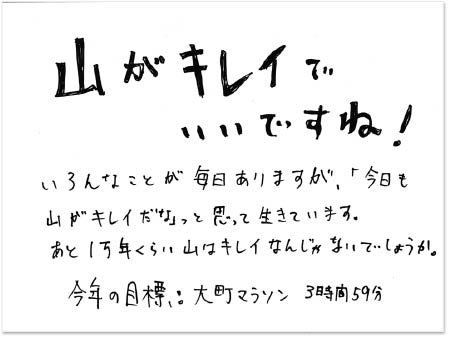 山がキレイで
いいですね!
いろんなことが毎日ありますが、「今日も
山がキレイだな」っと思って生きています。
あと1万年くらい山はキレイなんじゃないでしょうか。
今年の目標:大町マラソン 3時間59分